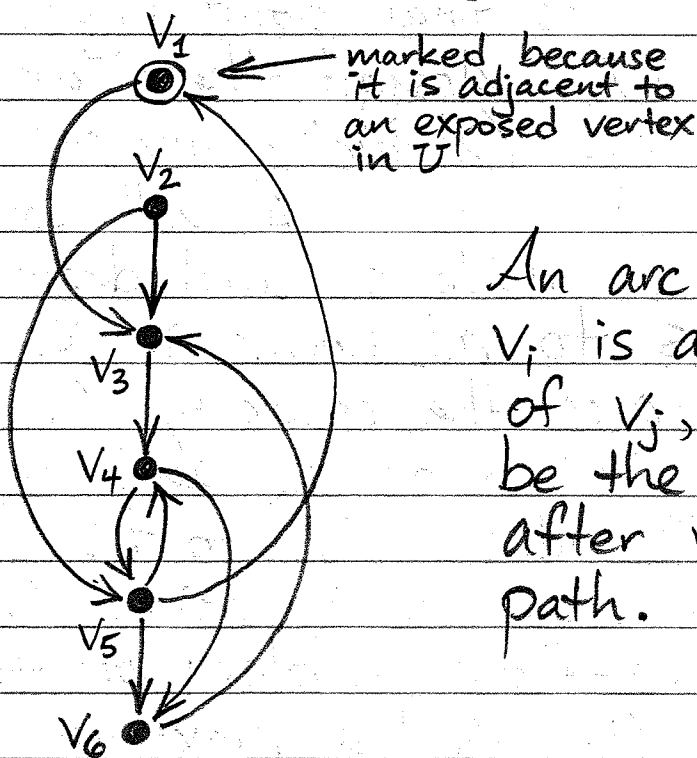 V1
marked because
it is adjacent to
an exposed vertex
in U
V2
An arc
Vi is a
V3
of Vj,
V4
be the
after
path.
V5
V6